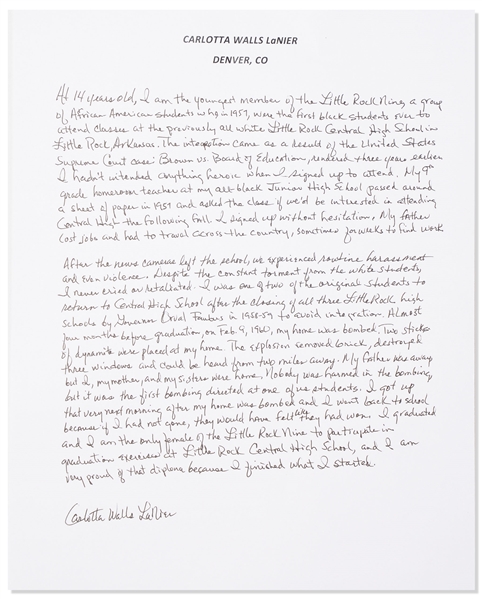 CARLOTTA WALLS LaNIER
DENVER, CO
At 14 years old, I am the youngest member of the Little Rock Nine, a group
of African American students who, in 1957, were the first black students ever to
attend classes at the previously all white Little Rock Central High School in
Little Rock, Arkansas. The integration came as a result of the United States
Supreme Court case: Brown vs. Board of Education, rendered three years earlier.
I hadn't intended anything heroic when I signed up to attend. My 9th
grade homeroom teacher at my all black Junior High School passed around
a sheet of paper in 1957 and asked the class if we'd be interested in attending
Central High the following fall. I signed up without hesitation. My father
lost jobs and had to travel across the country, sometimes for weeks to find work
After the news cameras left the school, we experienced routine harassment
and even violence. Despite the constant torment from the white students,
I never cried or retaliated. I was one of two of the original students to
return to Central High School after the closing of all three Little Rock high
schools by Governor Orval Faubus in 1958-59 to avoid integration. Almost
four months before graduation, on Feb. 9, 1960, my home was bombed. Two sticks
of dynamite were placed at my home. The explosion removed brick, destroyed
three windows and could be heard from two miles away. My father was away
but I, my mother, and my sisters were home. Nobody was harmed in the bombing,
but it was the first bombing directed at one of us students. I got up
that very next morning after my home was bombed and I went back to school
because if I had not gone, they would have felt like they had won. I graduated
and I am the only female of the Little Rock Nine to participate in
graduation exercises at Little Rock Central High School, and I am
very proud of that diploma because I finished what I started.
Carlotta Walls LaNier